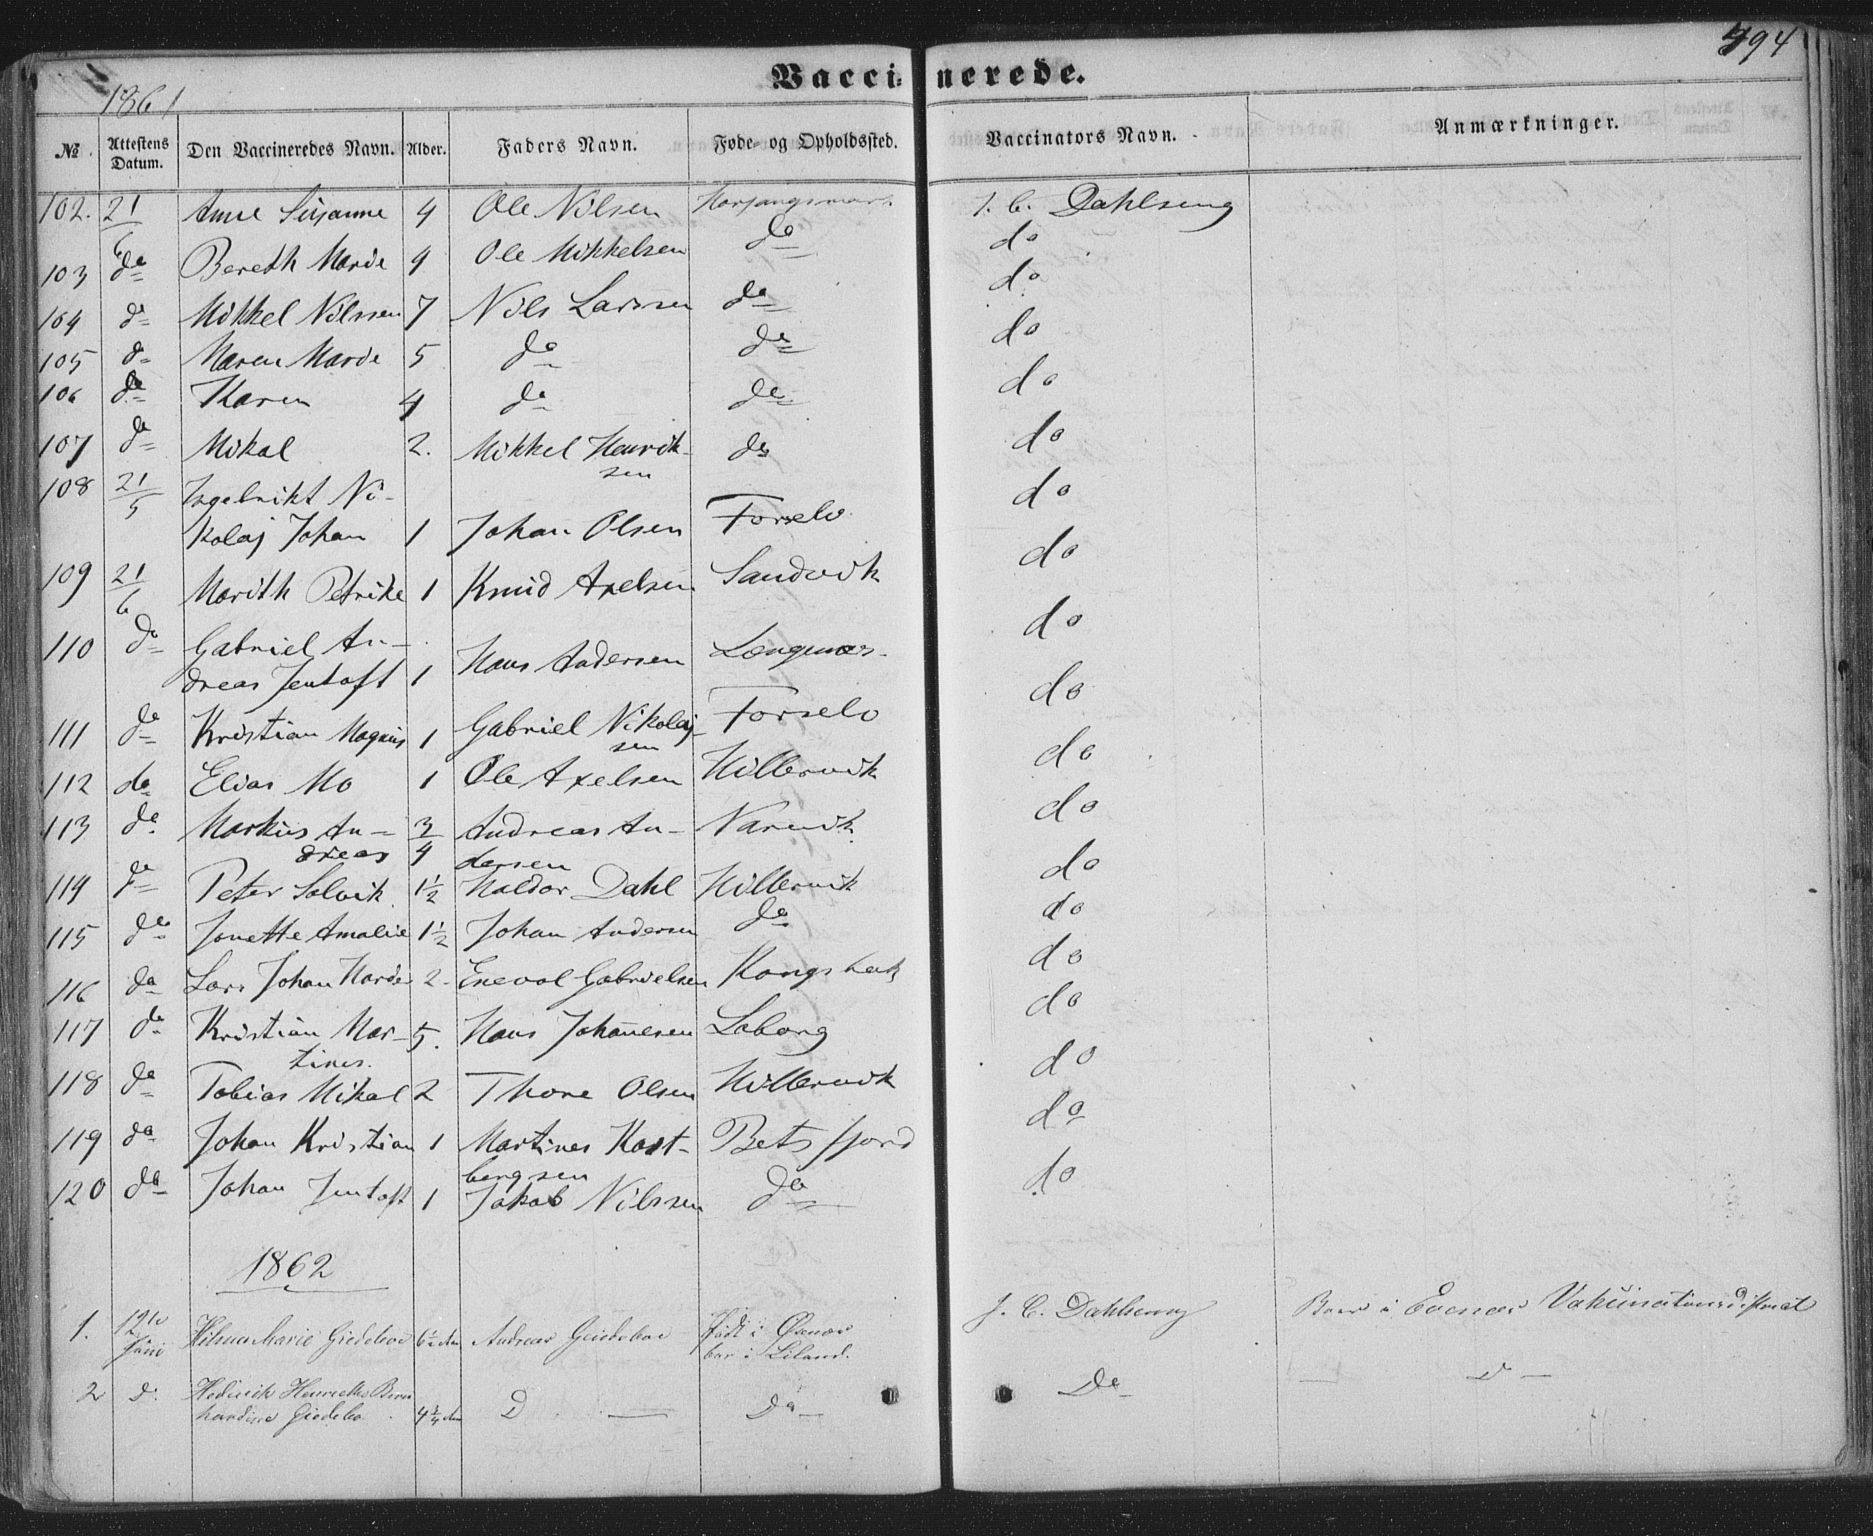 494
Vaccinerede.
1861
№ Attestens Datum. Den Vaccineredes Navn. Alder. Faders Navn. Føde- og Opholdssted. Vaccinators Navn. Anmærkninger.
102. 21/6 Anne Susanne 4 Ole Nilsen J. C. Dahlseng
103 do Bereth Marie 9 Ole Mikkelsen do do
104 do Mikkel Nilssen 7 Nils Larssen do do
105 do Maren Marie 5 do do do
106 do Karen 4 do do do
107 do Mikal 2. Mikkel Henrik-
sen do do
108 21/5 Ingebrikt Ni-
kolaj Johan 1 Johan Olsen Forselv do
109 21/6 Marith Petrike 1 Knud Axelsen Sandvik do
110 do Gabriel An-
dreas Jentoft 1 Hans Andersen Længenæs do
111 do Kristian Magnus 1 Gabriel Nikolaj-
sen Forselv do
112 do Elias Mo 1 Ole Axelsen Hillervik do
113 do Markus An-
dreas 3/4 Andreas An-
dersen Narvik do
114 do Peter Solvik 1½ Haldor Dahl Hillervik do
115 do Jonette Amalie 1½ Johan Andersen do do
116 do Lars Johan 2 Enevol Gabrielsen Kongsbak do
117 do Kristian Mar-
tines. 5. Hans Johanesen Loborg do
118 do Tobias Mikal 2 Thore Olsen Hillervik do
119 do Johan Kristian 1 Martines Kast-
bergsen Betsfjord do
120 do Johan Jentoft 1 Jakob Nilssen do do
1862
1. 12te Juni Hilma Marie Giedeboe 6½ Andreas Geideboe født i
boer i Liland. J. C. Dahlseng Boer i Evenæs Vakcinationsdistrict
2 D. Henriette Bern
hardine Giedebo 4¾ D — Do — Do — — D —